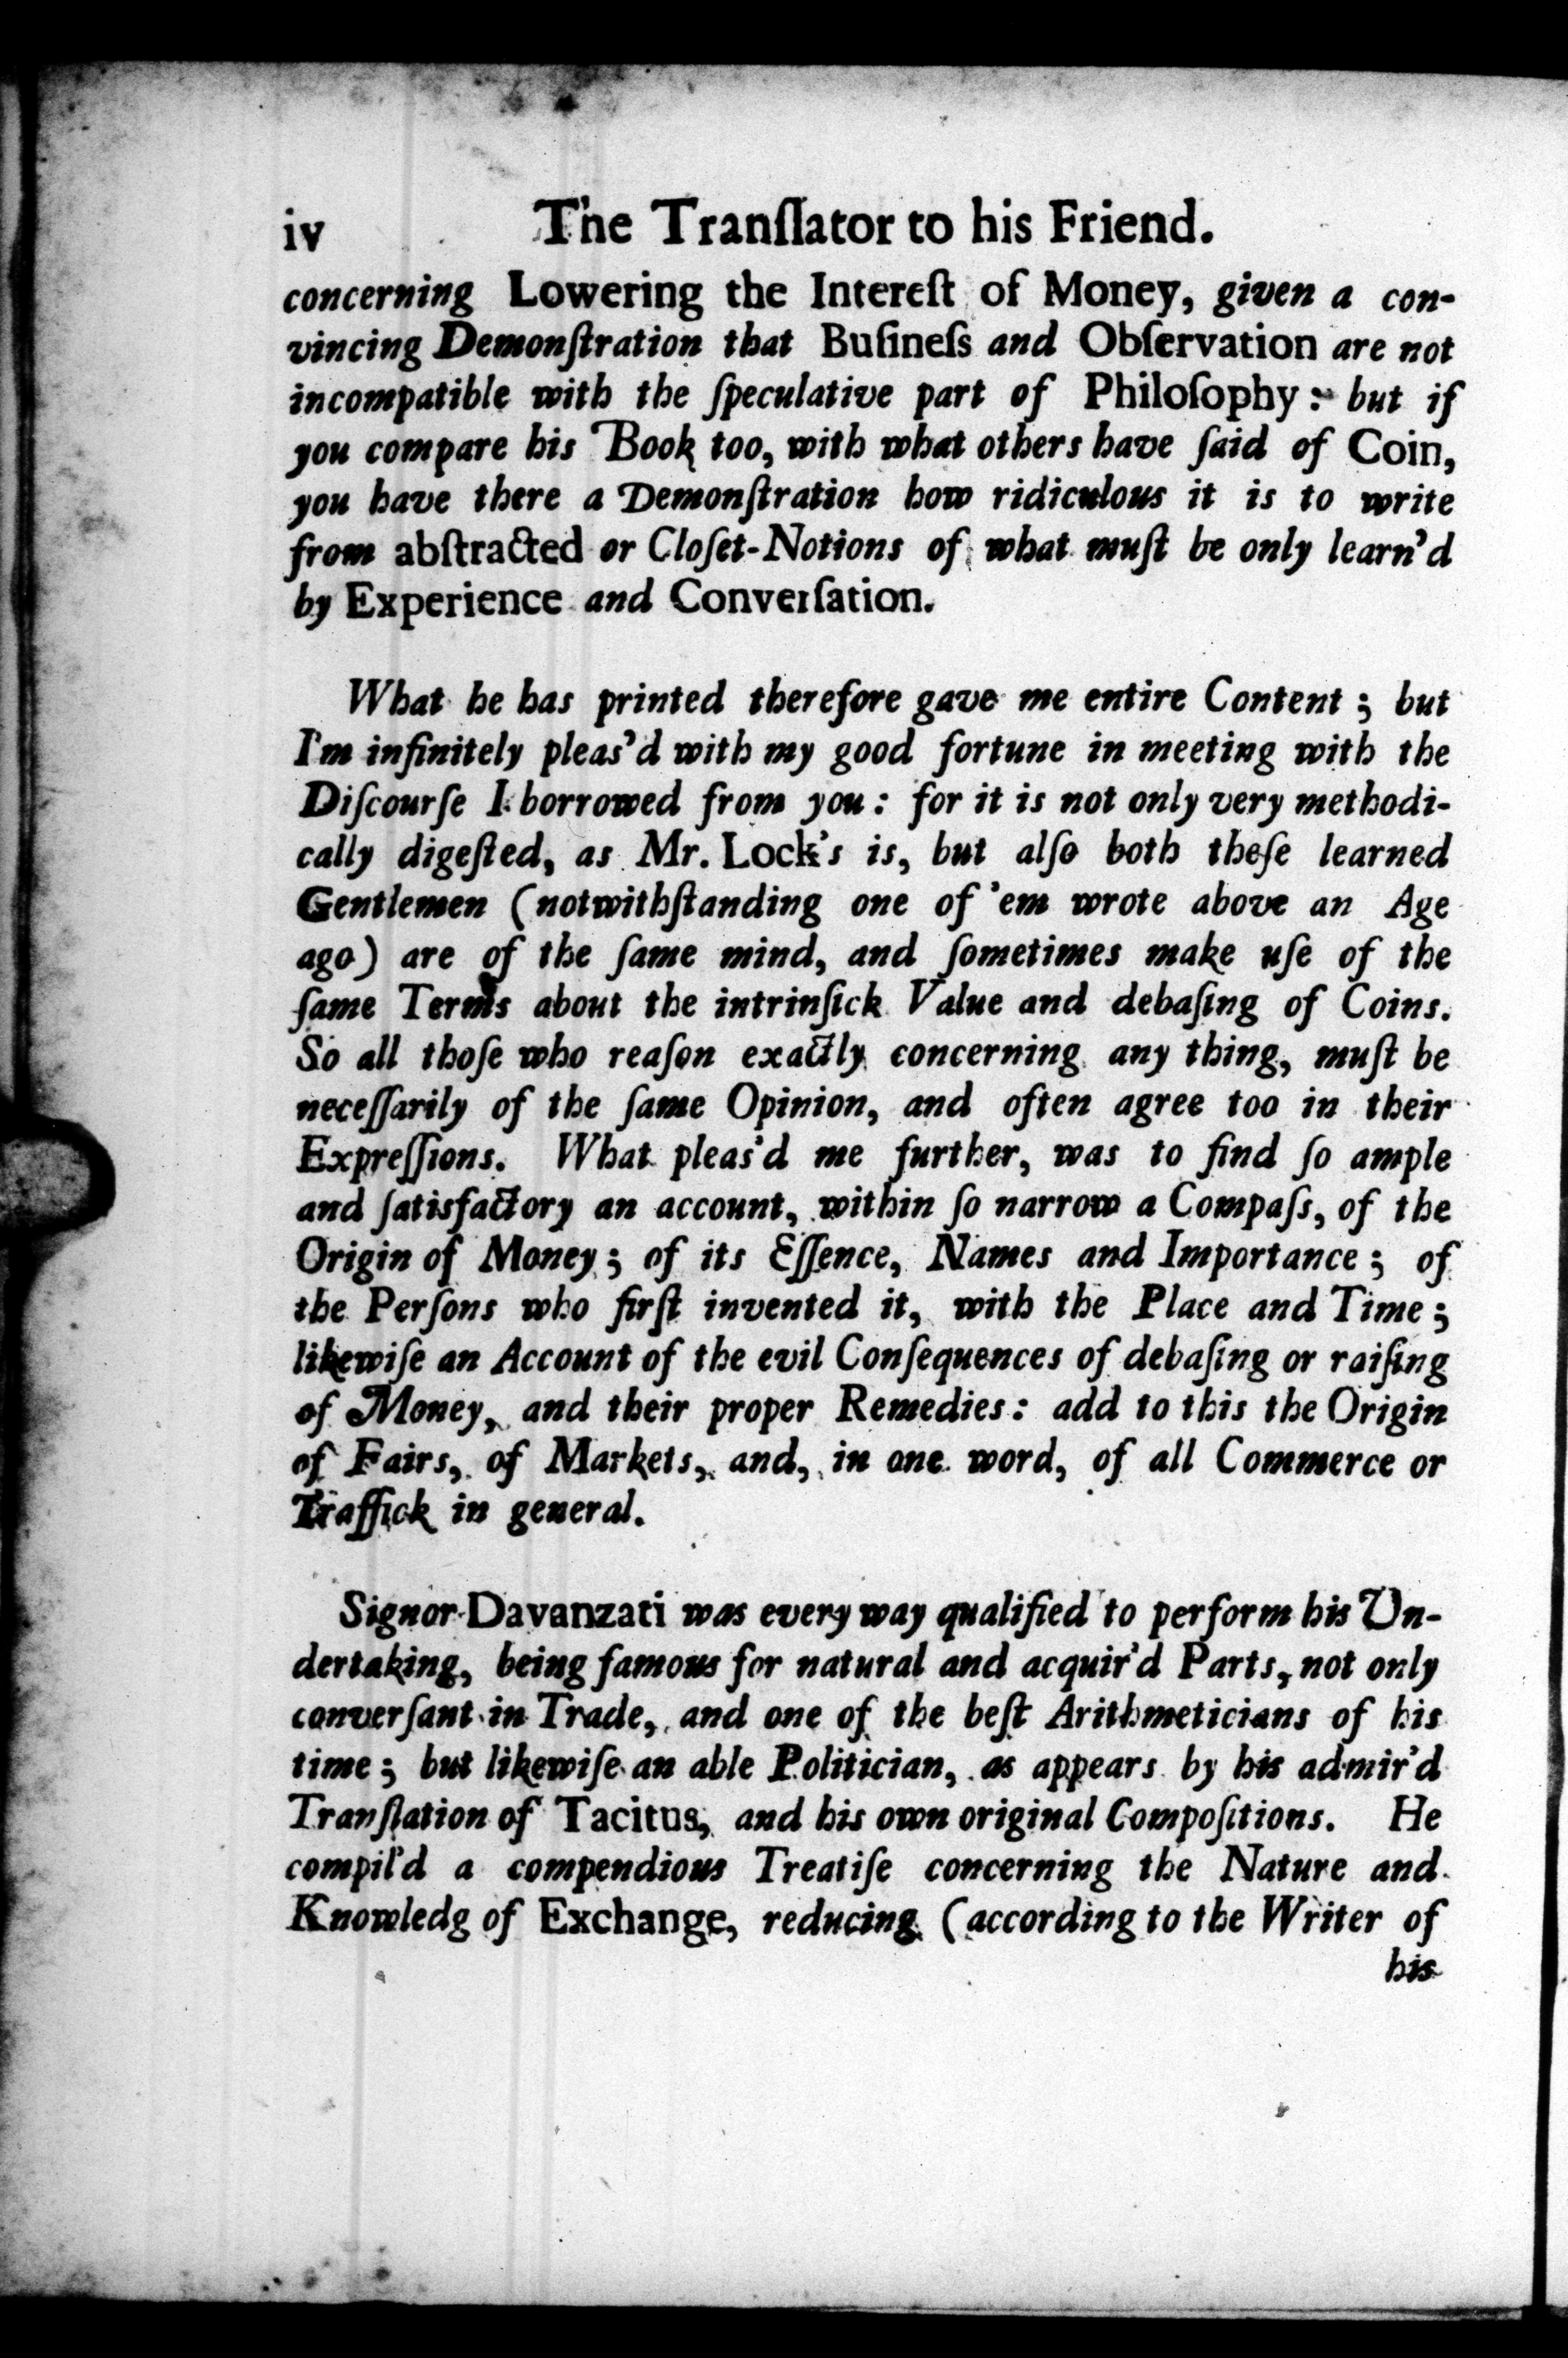 iv The Tranſlator to his Friend.
concerning Lowering the Intereſt of Money, given a con-
vincing Demonſtration that Buſineſs and Obſervation are not
incompatible with the ſpeculative part of Philoſophy: but if
you compare his Book too, with what others have ſaid of Coin,
you have there a Demonſtration how ridiculous it is to write
from abſtracted or Cloſet-Notions of what muſt be only learn'd
by Experience and Converſation.
What he has printed therefore gave me entire Content; but
I'm infinitely pleas'd with my good fortune in meeting with the
Diſcourſe I borrowed from you: for it is not only very methodi-
cally digeſted, as Mr. Lock's is, but alſo both theſe learned
Gentlemen (notwithſtanding one of 'em wrote above an Age
ago) are of the ſame mind, and ſometimes make uſe of the
ſame Terms about the intrinſick Value and debaſing of Coins.
So all thoſe who reaſon exactly concerning any thing, muſt be
neceſſarily of the ſame Opinion, and often agree too in their
Expreſſions. What pleas'd me further, was to find ſo ample
and ſatisfactory an account, within ſo narrow a Compaſs, of the
Origin of Money; of its Eſſence, Names and Importance; of
the Perſons who firſt invented it, with the Place and Time;
likewiſe an Account of the evil Conſequences of debaſing or raiſing
of Money, and their proper Remedies: add to this the Origin
of Fairs, of Markets, and, in one word, of all Commerce or
Traffick in general.
Signor Davanzati was every way qualified to perform his Un-
dertaking, being famous for natural and acquir'd Parts, not only
converſant in Trade, and one of the beſt Arithmeticians of his
time; but likewiſe an able Politician, as appears by his admir'd
Tranſlation of Tacitus, and his own original Compoſitions. He
compil'd a compendious Treatiſe concerning the Nature and
Knowledg of Exchange, reducing (according to the Writer of
his